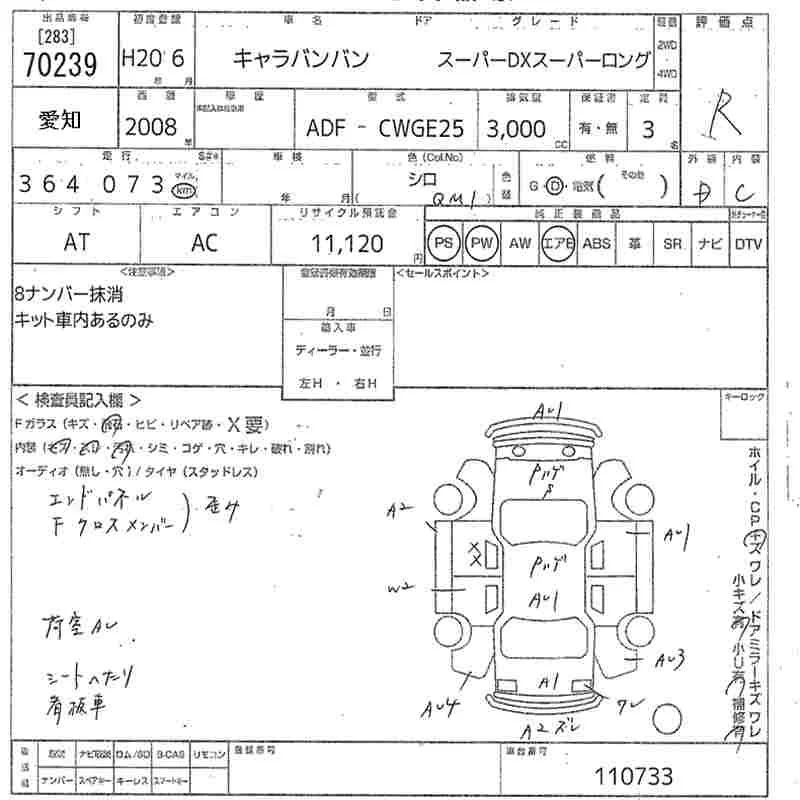 出品番号 初度登録 車名 ドア グレード 評価点
[283]
70239 H20 6 キャラバンバン スーパーDXスーパーロング 2WD 4WD
年 月
R
愛知 西暦 2008 年 型式 ADF - CWGE25 排気量 3,000 CC 保証書 有・無 定員 3 名
走行 車検 色(Col.No) 燃料 外装 内装
364073 マイル km 年 月 シロ QM1 色替 G・D・電気 ( その他 ) D C
シフト エアコン リサイクル預託金 純正装備品
AT AC 11,120 円 PS PW AW エアB ABS 革 SR ナビ DTV
<注意事項> <セールスポイント>
8ナンバー抹消
キット車内あるのみ
月 日
輸入車
ディーラー・並行
左H ・ 右H
< 検査員記入欄 > キーロック
Fガラス (キズ・飛石・ヒビ・リペア跡・X要)
内装 (キズ・ヨゴレ・汚れ・シミ・コゲ・穴・キレ・破れ・割れ)
オーディオ (無し・穴) / タイヤ (スタッドレス)
エンドパネル
Fクロスメンバー ) 歪み
荷室AU
シートへたり
看板車
AU1
Pハゲ
A2
AU1
XX
Pハゲ
W2
AU1
AU3
A1
AU4
ワレ
A2 ズレ
ホイル・CPキズ ワレ / ドアミラーキズ ワレ
小キズ有 小U有 補修有
取説 ナビ取説 ロム/SD B-CAS リモコン 登録番号 車台番号
ナンバー スペアキー キーレス スマートキー 110733